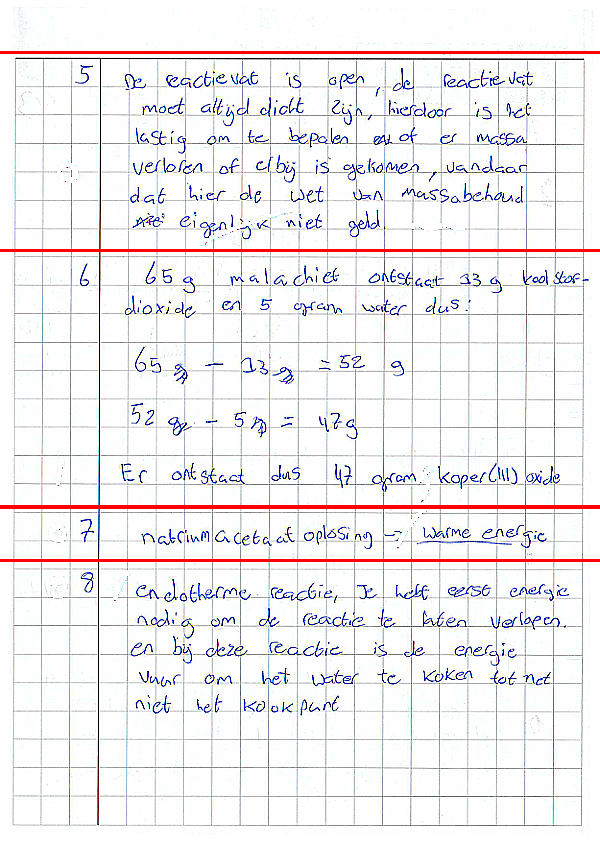 5 De reactievat is open, de reactievat
moet altijd dicht zijn, hierdoor is het
lastig om te bepalen of er massa
verloren of erbij is gekomen, vandaar
dat hier de wet van massabehoud
eigenlijk niet geld.
6 65 g malachiet ontstaat 13 g koolstof-
dioxide en 5 gram water dus:
65 g - 13 g = 52 g
52 g - 5 g = 47 g
Er ontstaat dus 47 gram koper(III) oxide
7 natriumacetaat oplosing -> warme energie
8 endotherme reactie, Je hebt eerst energie
nodig om de reactie te laten verlopen.
en bij deze reactie is de energie
vuur om het water te koken tot net
niet het kookpunt